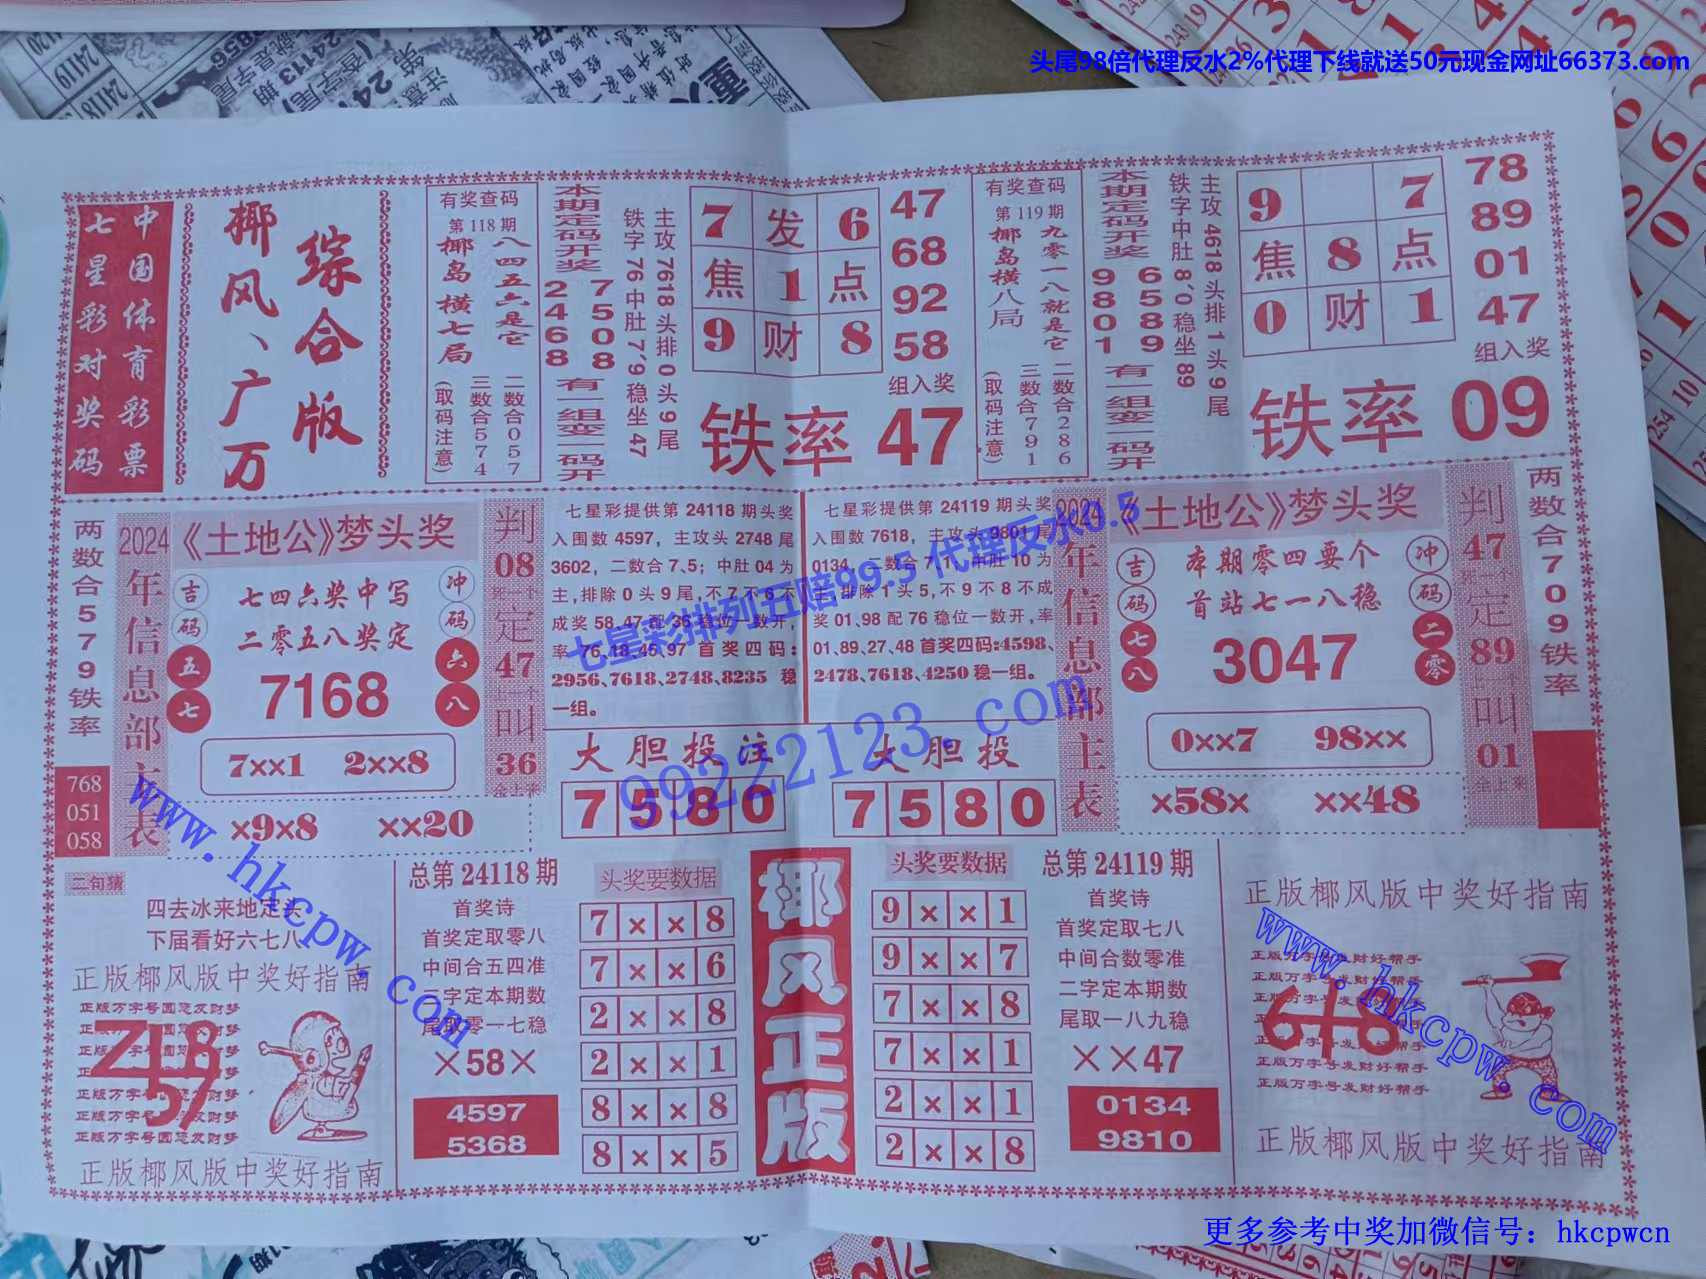 头尾98倍代理反水2%代理下线就送50元现金网址66373.com
中国体育彩票
七星彩对奖码
综合版
椰风、广万
有奖查码
第118期
八四五六是它
椰岛横七局
二数合057
三数合574
(取码注意)
本期定码开奖
7508
2468
有一组变一码开
主攻7618头排0头9尾
铁字76中肚7'9稳坐47
7 发 6
焦 1 点
9 财 8
47
68
92
58
组入奖
铁率47
有奖查码
第119期
九零一八就是它
椰岛横八局
二数合286
三数合791
(取码注意)
本期定码开奖
6589
9801
有一组变一码开
主攻4618头排1头9尾
铁字中肚8'0稳坐89
9 7
焦 8 点
0 财 1
78
89
01
47
组入奖
铁率09
两数合579铁率
768
051
058
2024年信息部主表
《土地公》梦头奖
吉码五七
七四六奖中写
二零五八奖定
冲码六八
7168
7××1 2××8
×9×8 ××20
判
08
定
47
叫
36
七星彩提供第24118期头奖
入围数4597，主攻头2748尾
3602，二数合7、5；中肚04为
主,排除0头9尾,不7不6不
成奖58、47配36稳位一数开,
率76、18、45、97首奖四码:
2956、7618、2748、8235稳
一组。
七星彩提供第24119期头奖
入围数7618，主攻头9801尾
0134，二数合7、1，中肚10为
主,排除1头5,不9不8不成
奖01、98配76稳位一数开,率
01、89、27、48首奖四码:4598、
2478、7618、4250稳一组。
七星彩排列五赔99.5代理反水0.5
99222123.com
大胆投注
7580
大胆投
7580
2024年信息部主表
《土地公》梦头奖
吉码七八
本期零四要个
首站七一八稳
冲码二零
3047
0××7 98××
×58× ××48
判
47
定
89
叫
01
两数合709铁率
二句猜
四去冰来地定头
下届看好六七八
正版椰风版中奖好指南
正版椰风版中奖好指南
www.hkcpw.com
总第24118期
首奖诗
首奖定取零八
中间合五四准
二字定本期数
尾取零一七稳
×58×
4597
5368
头奖要数据
7××8
7××6
2××8
2××1
8××8
8××5
椰风正版
头奖要数据
9××1
9××7
7××8
7××1
2××1
2××8
总第24119期
首奖诗
首奖定取七八
中间合数零准
二字定本期数
尾取一八九稳
××47
0134
9810
正版椰风版中奖好指南
正版万字号发财好帮手
正版万字号发财好帮手
正版万字号发财好帮手
正版万字号发财好帮手
正版万字号发财好帮手
正版椰风版中奖好指南
www.hkcpw.com
更多参考中奖加微信号：hkcpwcn